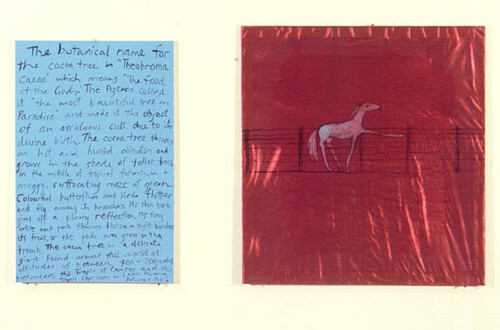 The botanical name for
the cocoa tree is 'Theobroma
Cacao' which means 'The food
of the Gods'. The Aztecs called
it 'the most beautiful tree in
Paradise' and made it the object
of an assiduous cult due to its
divine birth. The cocoa tree thrives
in hot humid climates and
grows in the shade of taller trees
in the middle of tropical forests, in a
muggy, suffocating maze of green.
Colourful butterflies and birds flutter
and fly among its branches. Its thin bark
gives off a silvery reflection. Its tiny
white and pink flowers blossom right
its fruit, or the pods even grow on the
trunk. The cocoa tree is a delicate
giant found around the world at
altitudes of between 400 - 700
between the Tropic of Cancer and the
Tropic Capricorn in